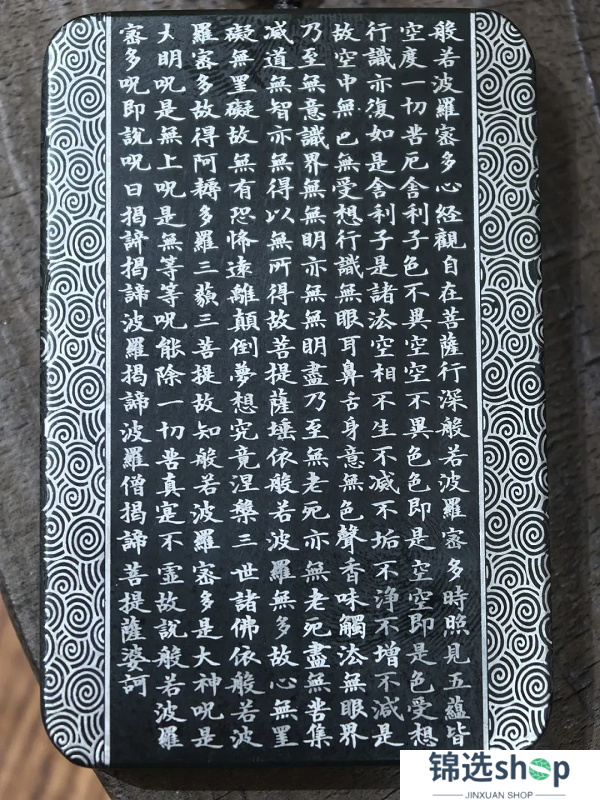 般若波羅蜜多心経觀自在菩薩行深般若波羅蜜多時照見五蘊皆
空度一切苦厄舍利子色不異空空不異色色即是空空即是色受想
行識亦復如是舍利子是諸法空相不生不滅不垢不淨不增不減是
故空中無色無受想行識無眼耳鼻舌身意無色聲香味觸法無眼界
乃至無意識界無無明亦無無明盡乃至無老死亦無老死盡無苦集
滅道無智亦無得以無所得故菩提薩埵依般若波羅無多故心無罣
礙無罣礙故無有恐怖遠離顛倒夢想究竟涅槃三世諸佛依般若波
羅蜜多故得阿耨多羅三藐三菩提故知般若波羅蜜多是大神呪是
大明呪是無上呪是無等等呪能除一切苦真寔不霊故說般若波羅
蜜多呪即說呪曰揭諦揭諦波羅揭諦波羅僧揭諦菩提薩婆訶
锦选shop
JINXUAN SHOP